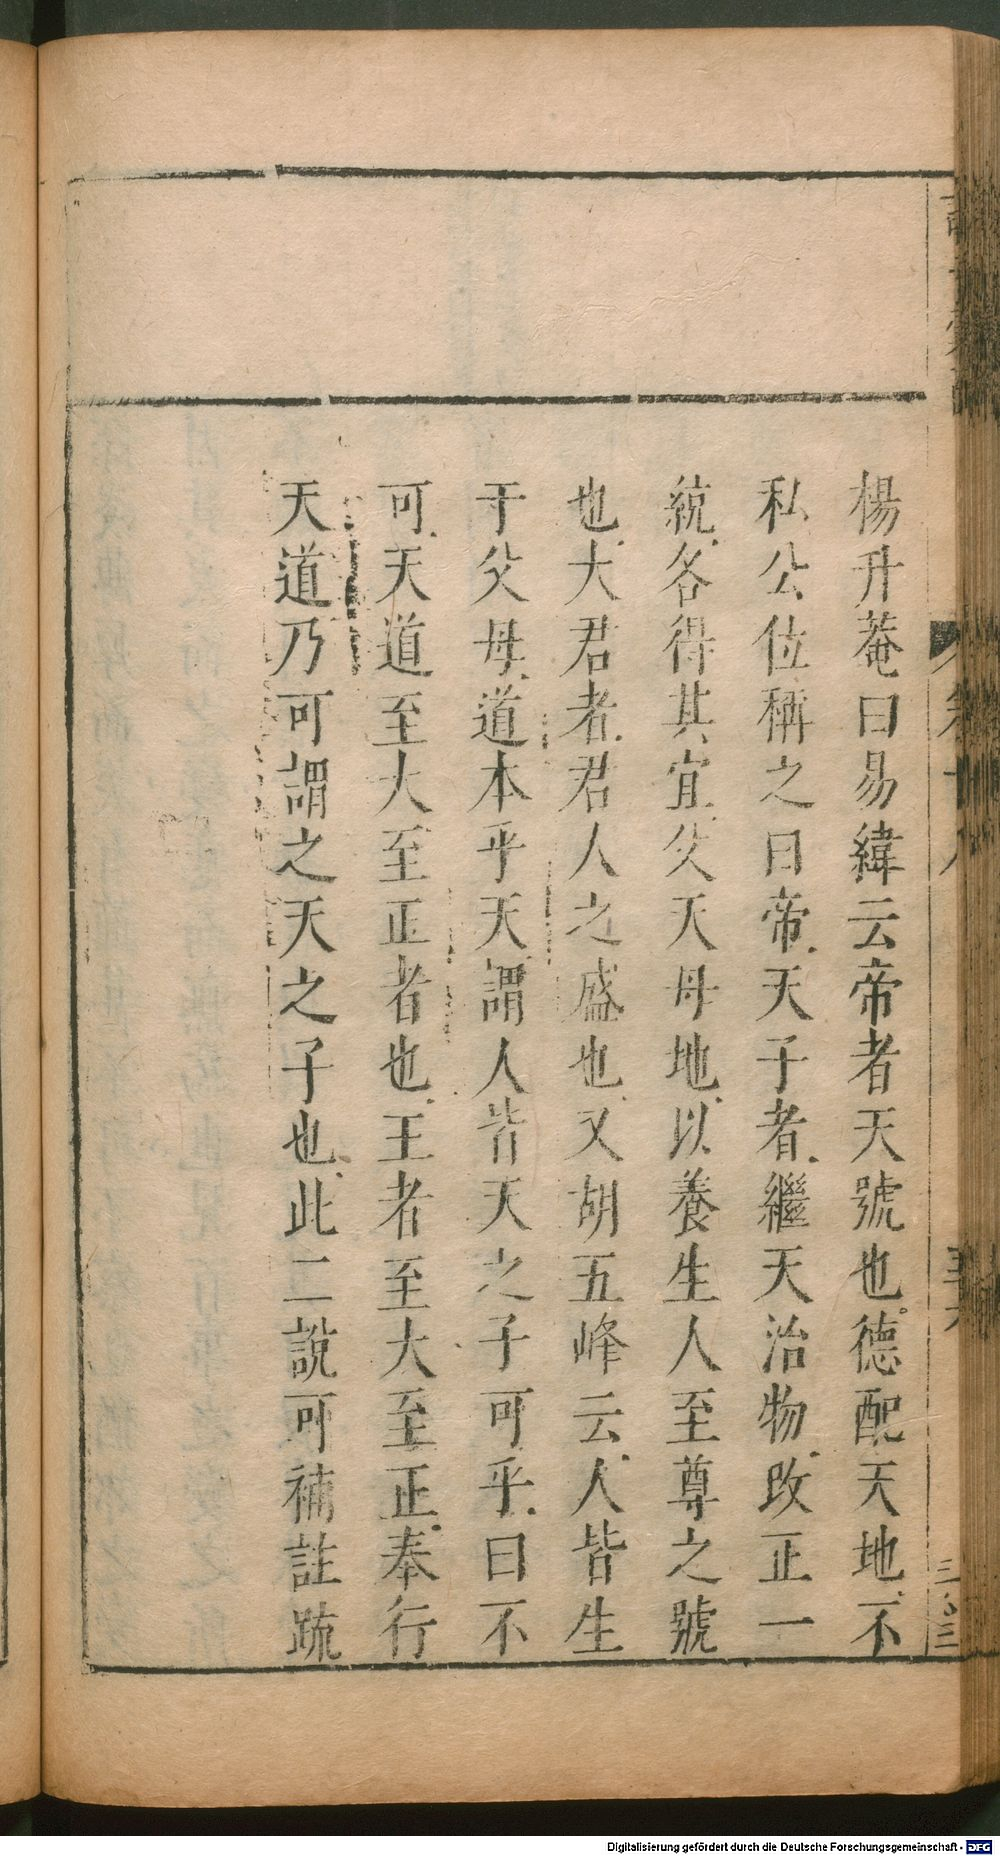 楊升菴曰易緯云帝者天號也德配天地不
私公位稱之曰帝天子者繼天治物改正一
統各得其宜父天母地以養生人至尊之號
也大君者君人之盛也又胡五峰云人皆生
于父母道本乎天謂人皆天之子可乎曰不
可天道至大至正者也王者至大至正奉行
天道乃可謂之天之子也此二說可補註疏
Digitalisierung gefördert durch die Deutsche Forschungsgemeinschaft - DFG